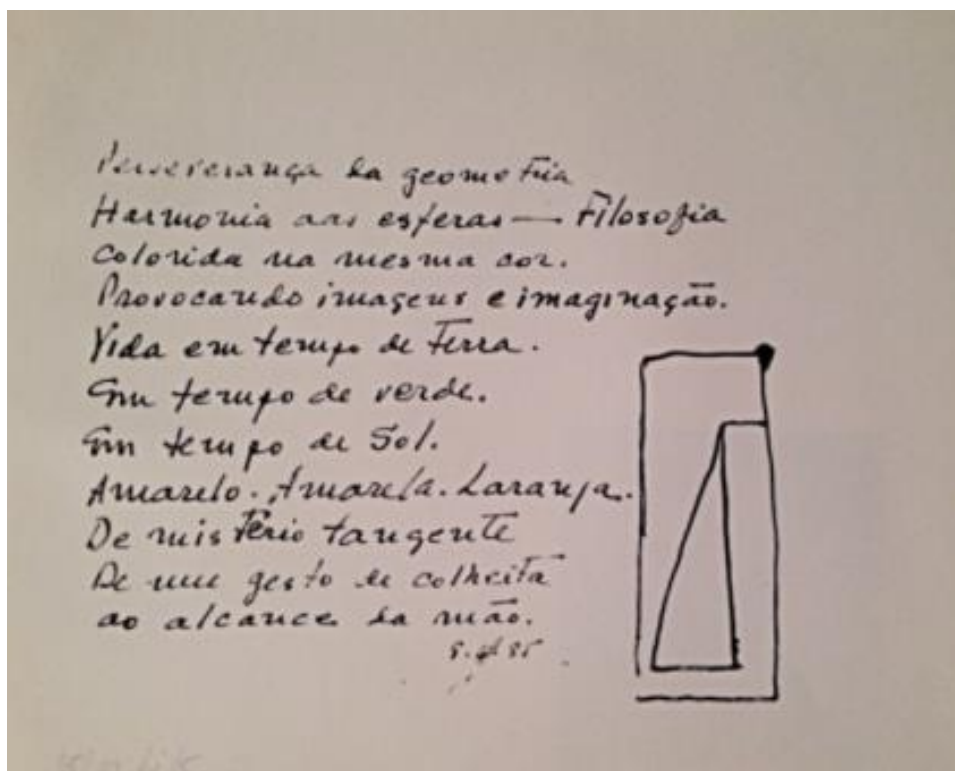 Perseverança da geometria
Harmonia das esferas — Filosofia
Colorida na mesma cor.
Provocando imagens e imaginação.
Vida em tempo de terra.
Em tempo de verde.
Em tempo de Sol.
Amarelo. Amarela. Laranja.
De mistério tangente
De um gesto de colheita
ao alcance da mão.